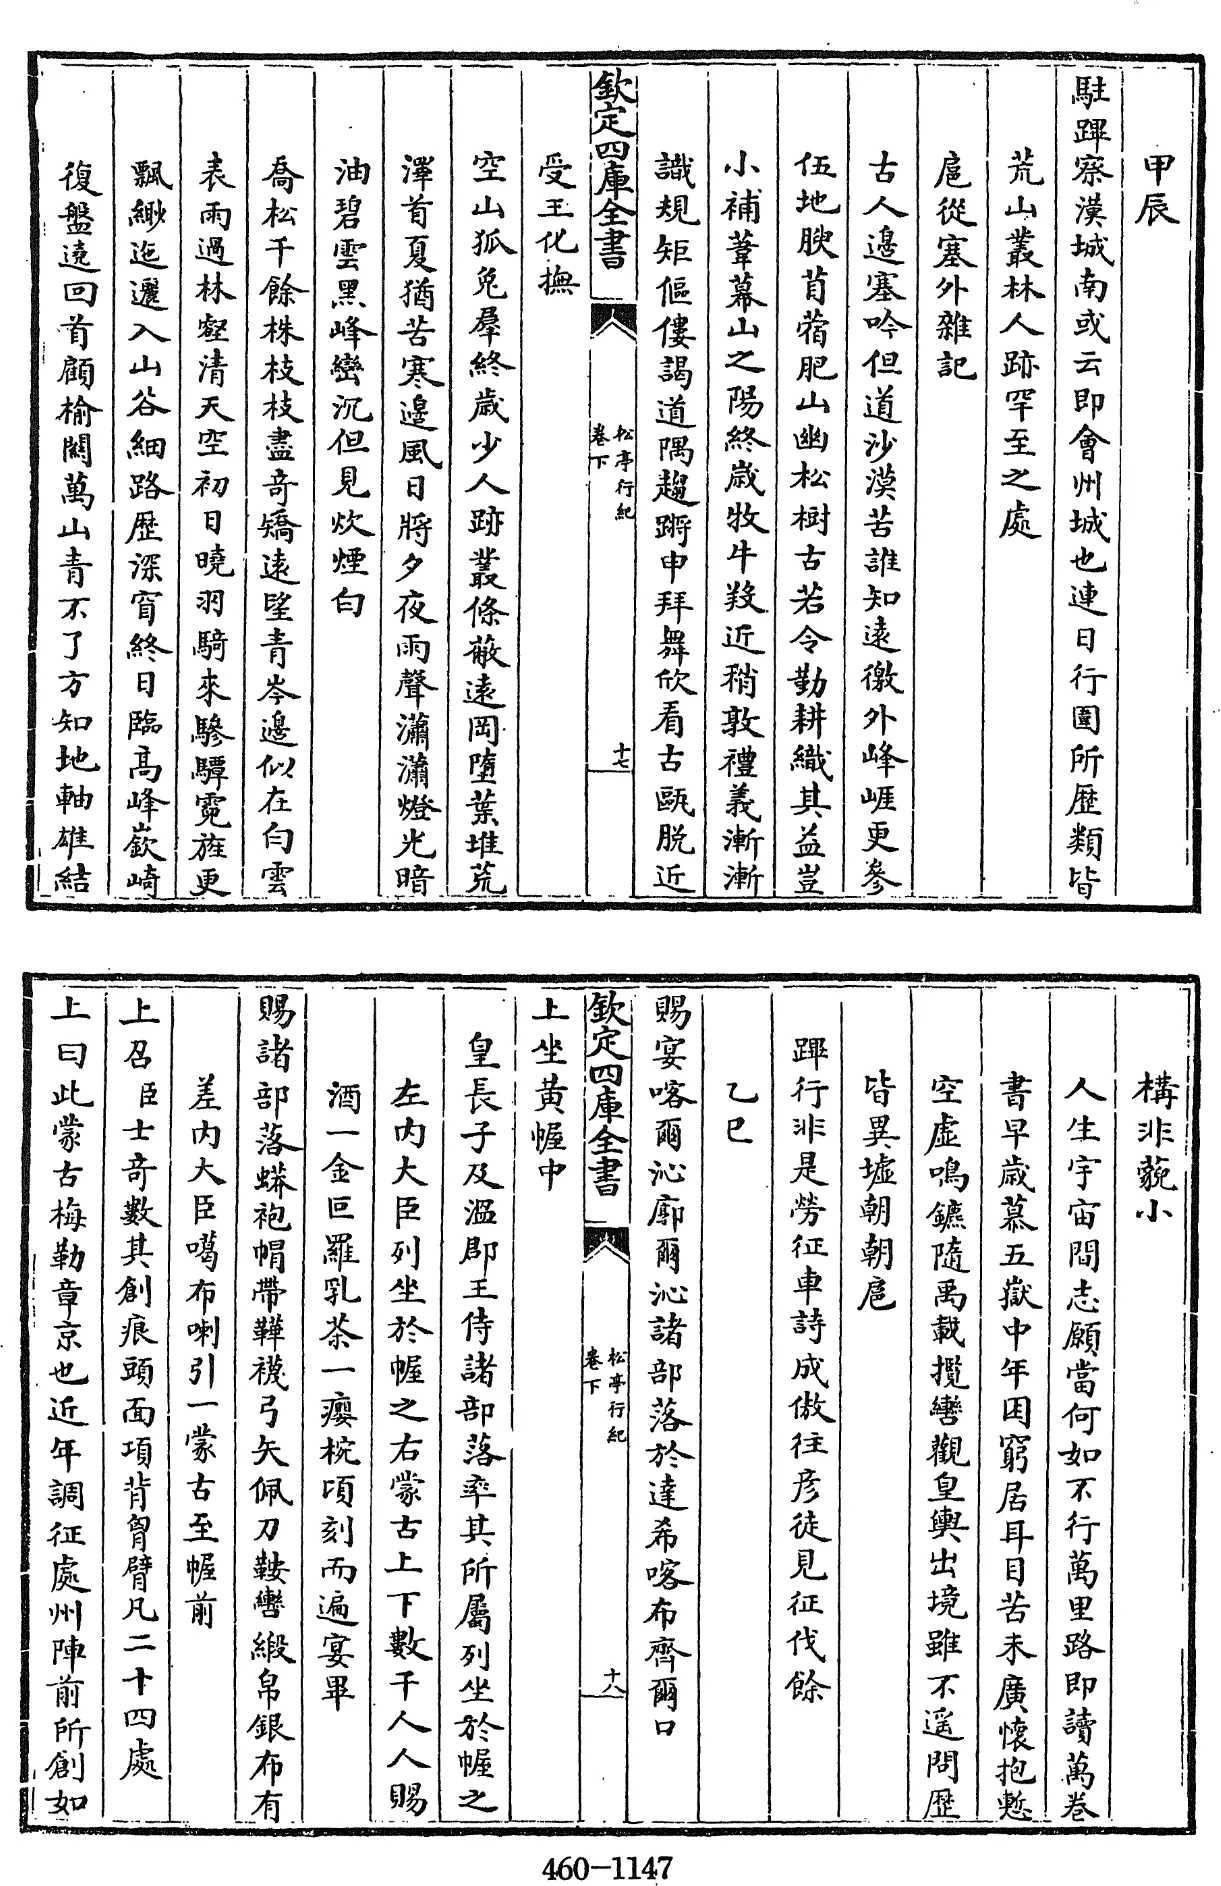 甲辰
駐蹕察漢城南或云即會州城也連日行圍所歴類皆
荒山叢林人跡罕至之處
扈從塞外雜記
古人邊塞吟但道沙漠苦誰知遠徼外峰崕更參
伍地腴苜蓿肥山幽松樹古若令勤耕織其益豈
小補葦幕山之陽終歳牧牛羖近稍敦禮義漸漸
識規矩傴僂謁道隅趨蹡申拜舞欣看古甌脱近
欽定四庫全書
松亭行紀
卷下
十七
受王化撫
空山狐兎羣終歳少人跡叢條蔽遠岡墮葉堆荒
澤首夏猶苦寒邊風日將夕夜雨聲瀟瀟燈光暗
油碧雲黑峰巒沉但見炊煙白
喬松千餘株枝枝盡奇矯遠望青岑邊似在白雲
表雨過林壑清天空初日曉羽騎來驂驔霓旌更
飄緲迤邐入山谷細路歴深窅終日臨高峰嶔崎
復盤遶回首顧榆闗萬山青不了方知地軸雄結
構非藐小
人生宇宙間志願當何如不行萬里路即讀萬卷
書早歳慕五嶽中年困窮居耳目苦未廣懷抱慙
空虛鳴鑣隨禹載攬轡觀皇輿出境雖不遥問歴
皆異墟朝朝扈
蹕行非是勞征車詩成傲徃彦徒見征伐餘
乙巳
賜宴喀爾沁廓爾沁諸部落於達希喀布齊爾口
欽定四庫全書
松亭行紀
卷下
十八
上坐黄幄中
皇長子及温郡王侍諸部落率其所屬列坐於幄之
左内大臣列坐於幄之右蒙古上下數千人人賜
酒一金叵羅乳茶一癭椀頃刻而遍宴畢
賜諸部落蟒袍帽帶鞾襪弓矢佩刀鞍轡緞帛銀布有
差内大臣噶布喇引一蒙古至幄前
上召臣士奇數其創痕頭面項背胷臂凡二十四處
上曰此蒙古梅勒章京也近年調征處州陣前所創如
460-1147